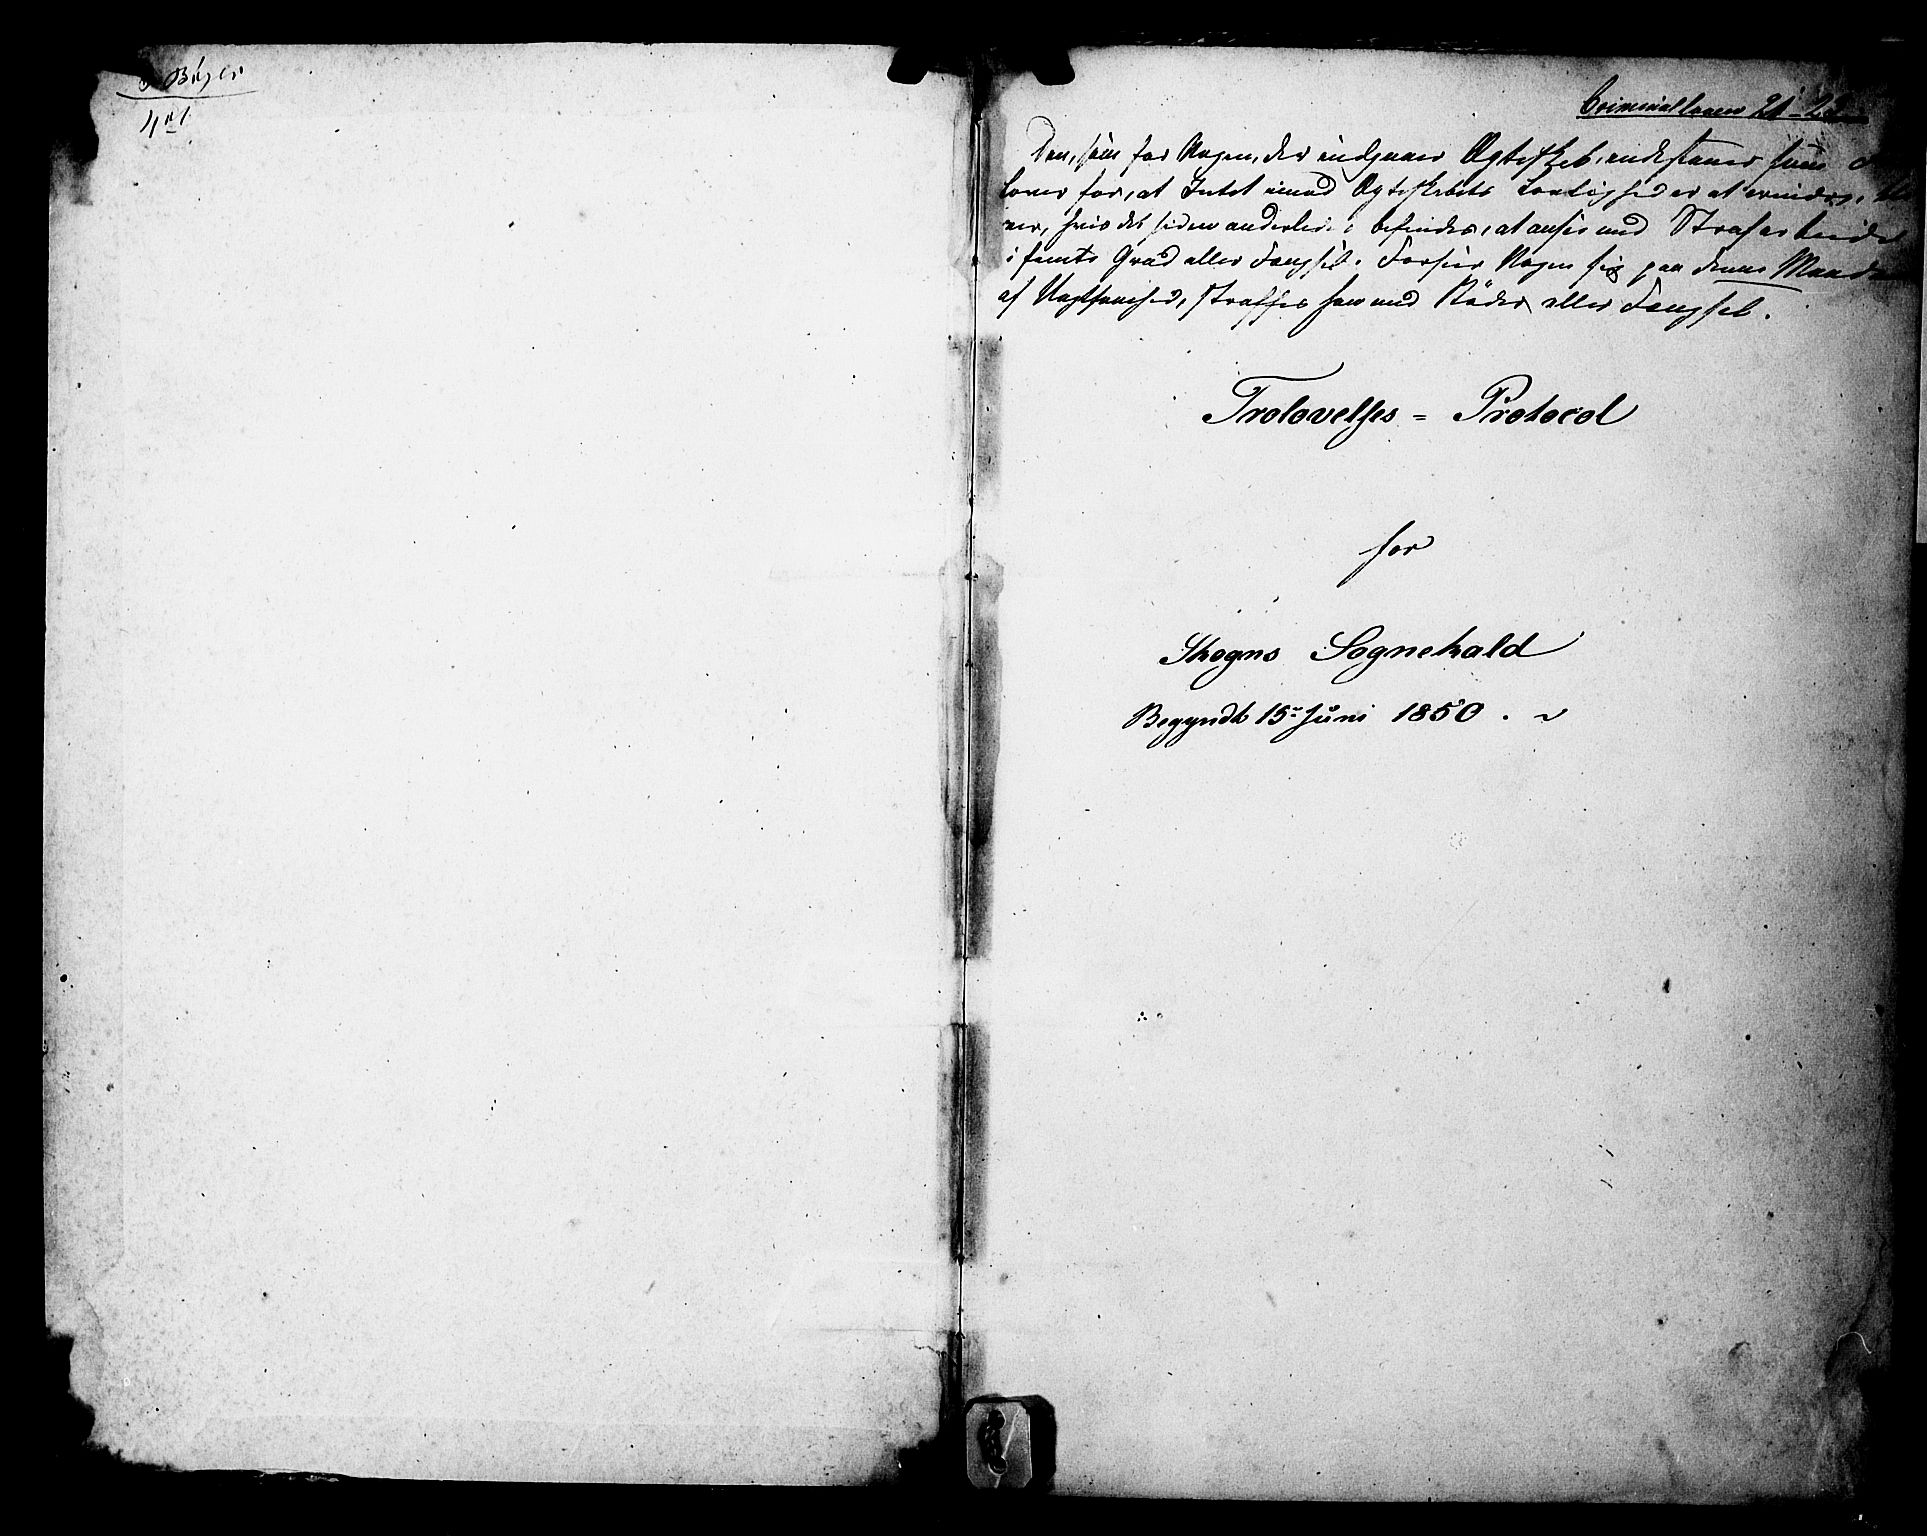 Bøger
Criminalloven 21-22
Den, som for Nogen, der indgaaer Ægteskab, indestaaer som
lover for, at Intet imod Ægteskabets Lovlighed er at erindre, bli-
ver, hvis det siden anderledes befindes, at ansee med Strafarbeide
i femte Grad eller Fængsel. Forseer Nogen sig paa denne Maade
af Uagtsomhed, straffes han med Bøder eller Fængsel.
Trolovelses = Protocol
for
Skogns Sognekald
Begyndt 15de Juni 1850.